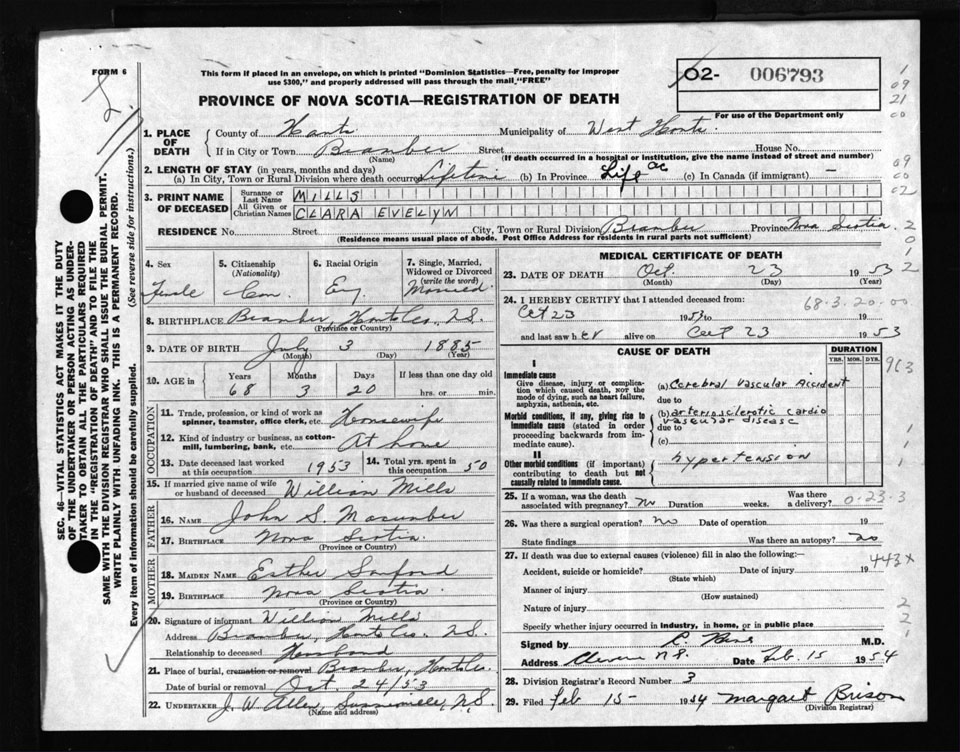 FORM 6
This form if placed in an envelope, on which is printed "Dominion Statistics—Free, penalty for improper
use $300," and properly addressed will pass through the mail "FREE"
02- 006793
For use of the Department only
PROVINCE OF NOVA SCOTIA—REGISTRATION OF DEATH
1. PLACE OF DEATH
County of Hants Municipality of West Hants
If in City or Town Bramber Street House No.
(Name) (If death occurred in a hospital or institution, give the name instead of street and number)
2. LENGTH OF STAY (in years, months and days)
(a) In City, Town or Rural Division where death occurred Lifetime (b) In Province Life (c) In Canada (if immigrant) —
3. PRINT NAME OF DECEASED
Surname or Last Name MILLS
All Given or Christian Names CLARA EVELYN
RESIDENCE No. Street City, Town or Rural Division Bramber Province Nova Scotia
(Residence means usual place of abode. Post Office Address for residents in rural parts not sufficient)
4. Sex Female
5. Citizenship (Nationality) Can.
6. Racial Origin Eng
7. Single, Married, Widowed or Divorced (write the word) Married
8. BIRTHPLACE Bramber, Hants Co. N.S.
(Province or Country)
9. DATE OF BIRTH July 3 1885
(Month) (Day) (Year)
10. AGE in Years Months Days If less than one day old
68 3 20 hrs. or min.
OCCUPATION
11. Trade, profession, or kind of work as spinner, teamster, office clerk, etc. Housewife
12. Kind of industry or business, as cotton-mill, lumbering, bank, etc. At home
13. Date deceased last worked at this occupation 1953
14. Total yrs. spent in this occupation 50
15. If married give name of wife or husband of deceased William Mills
FATHER
16. NAME John S Macumber
17. BIRTHPLACE Nova Scotia
(Province or Country)
MOTHER
18. MAIDEN NAME Esther Sanford
19. BIRTHPLACE Nova Scotia
(Province or Country)
20. Signature of informant William Mills
Address Bramber, Hants Co. N.S.
Relationship to deceased Husband
21. Place of burial, cremation or removal Bramber, Hants Co.
Date of burial or removal Oct. 24/53
22. UNDERTAKER J. W. Allen, N.S.
(Name and address)
MEDICAL CERTIFICATE OF DEATH
23. DATE OF DEATH Oct. 23 1953
(Month) (Day) (Year)
24. I HEREBY CERTIFY that I attended deceased from: 68-3-20-00
Oct 23 19 to 19
and last saw her alive on Oct 23 1953
CAUSE OF DEATH
DURATION
YRS. MOS. DYS.
I
Immediate cause
Give disease, injury or complication which caused death, NOT the mode of dying, such as heart failure, asphyxia, asthenia, etc.
(a) Cerebral Vascular Accident
due to
Morbid conditions, if any, giving rise to immediate cause (stated in order proceeding backwards from immediate cause).
(b) arteriosclerotic cardio vascular disease
due to
(c)
II
Other morbid conditions (if important) contributing to death but not causally related to immediate cause.
hypertension
25. If a woman, was the death associated with pregnancy? No Duration weeks. Was there a delivery?
0-23-3
26. Was there a surgical operation? no Date of operation 19
State findings Was there an autopsy? no
27. If death was due to external causes (violence) fill in also the following:—
443x
Accident, suicide or homicide? Date of injury 19
(State which)
Manner of injury
(How sustained)
Nature of injury
Specify whether injury occurred in industry, in home, or in public place
Signed by M.D.
Address N.S. Date Feb. 15 1954
28. Division Registrar's Record Number 3
29. Filed Feb 15- 1954 Margaret Brison
(Division Registrar)
SEC. 46—VITAL STATISTICS ACT MAKES IT THE DUTY
OF THE UNDERTAKER OR PERSON ACTING AS UNDER-
TAKER TO OBTAIN ALL THE PARTICULARS REQUIRED
IN THE "REGISTRATION OF DEATH" AND TO FILE THE
SAME WITH THE DIVISION REGISTRAR WHO SHALL ISSUE THE BURIAL PERMIT.
WRITE PLAINLY WITH UNFADING INK. THIS IS A PERMANENT RECORD.
Every item of information should be carefully supplied. (See reverse side for instructions.)